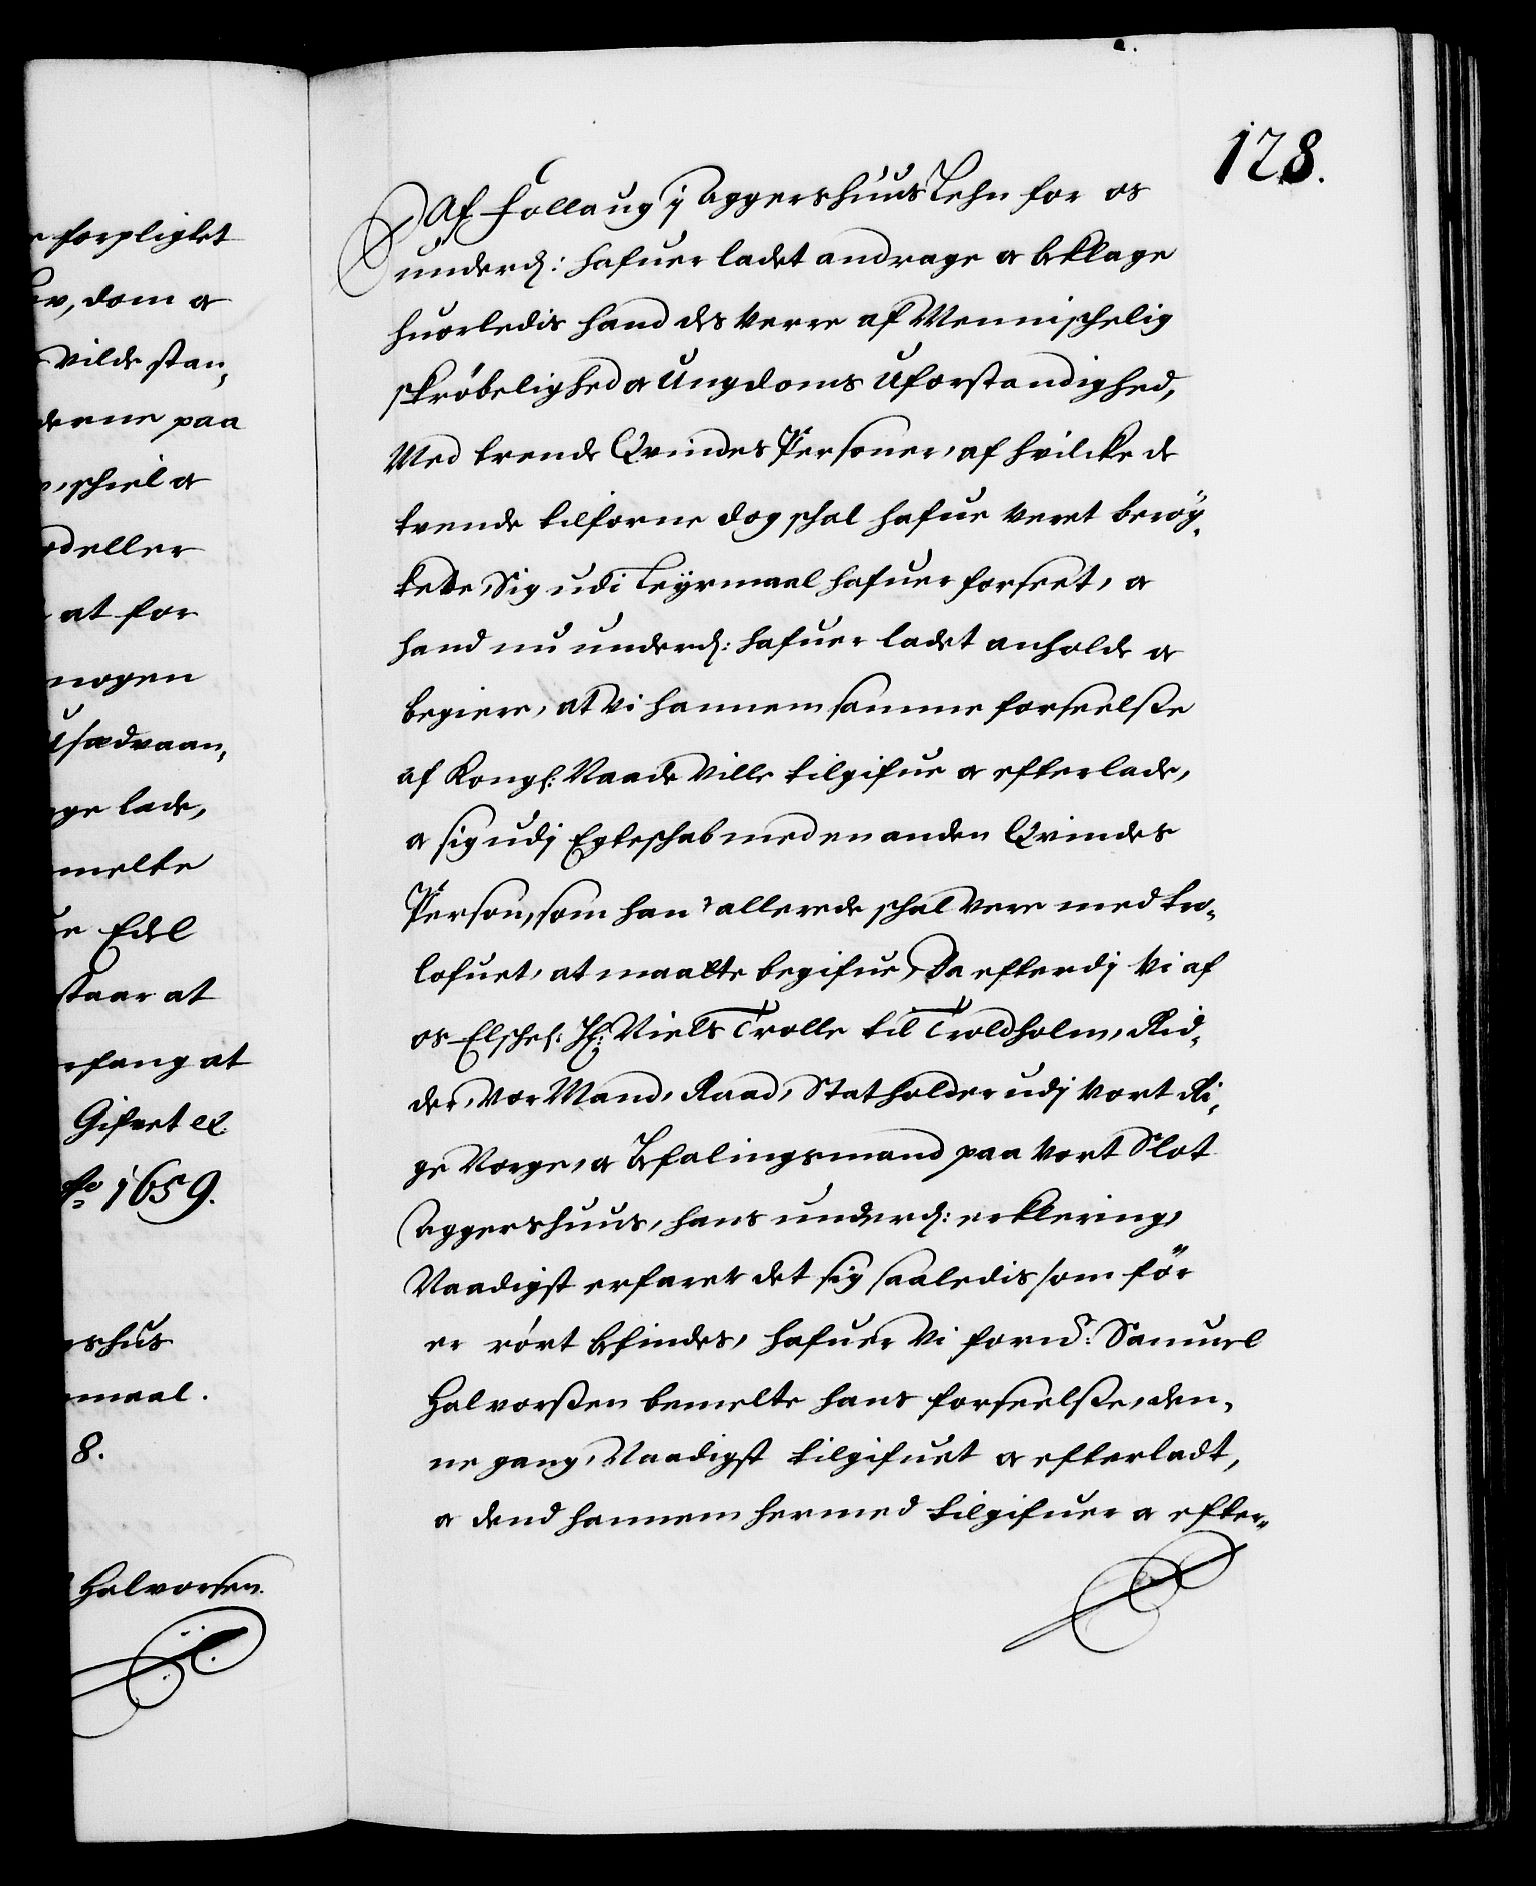 forpligtet
dom og
vilde stan,
derne paa
schiel og
eller
at for
nogen
usædvaan,
ge lade,
melte
Edel
staar at
fang at
Gifvet etc.
1659.
shus
maal.
8.
Halvorsen.
128.
Af Follaug j Aggershuus Lehn for os
underd: hafuer ladet andrage og beklage
huorledis hand des verre af Mennischelig
skrøbelighed og Ungdoms uforstandighed,
Med trende Qvindes Personer, af hvilcke de
tvende tilforne dog schal hafue veret berøy,
tede, Sig udi Leyrmaal hafuer forseet, og
hand nu underd: hafuer ladet anholde og
begiere, at Vi hannem samme forseelsse
af Kongl: Naade Ville tilgifue og efterlade,
og sig udj Egteschab med en anden Qvindes
Person, som hand allerede schal vere med tro,
lofuet, at maatte begifue, Da efterdj Vi af
os Elschel: Hr: Niels Trolle til Troldholm, Rid,
der, Vor Mand, Raad, Statholder udj Vort Ri,
ge Norge, og Befalingsmand paa Vort Slot
Aggershuus, hans underd: erklering,
Naadigst erfaret det sig saaledis som før
er rørt befindes, hafuer Vi fornd: Samuel
Halvorssen bemelte hans forseelsse, den,
ne gang, Naadigst tilgifuet og efterladt,
og dend hannem hermed tilgifuer og efter,,